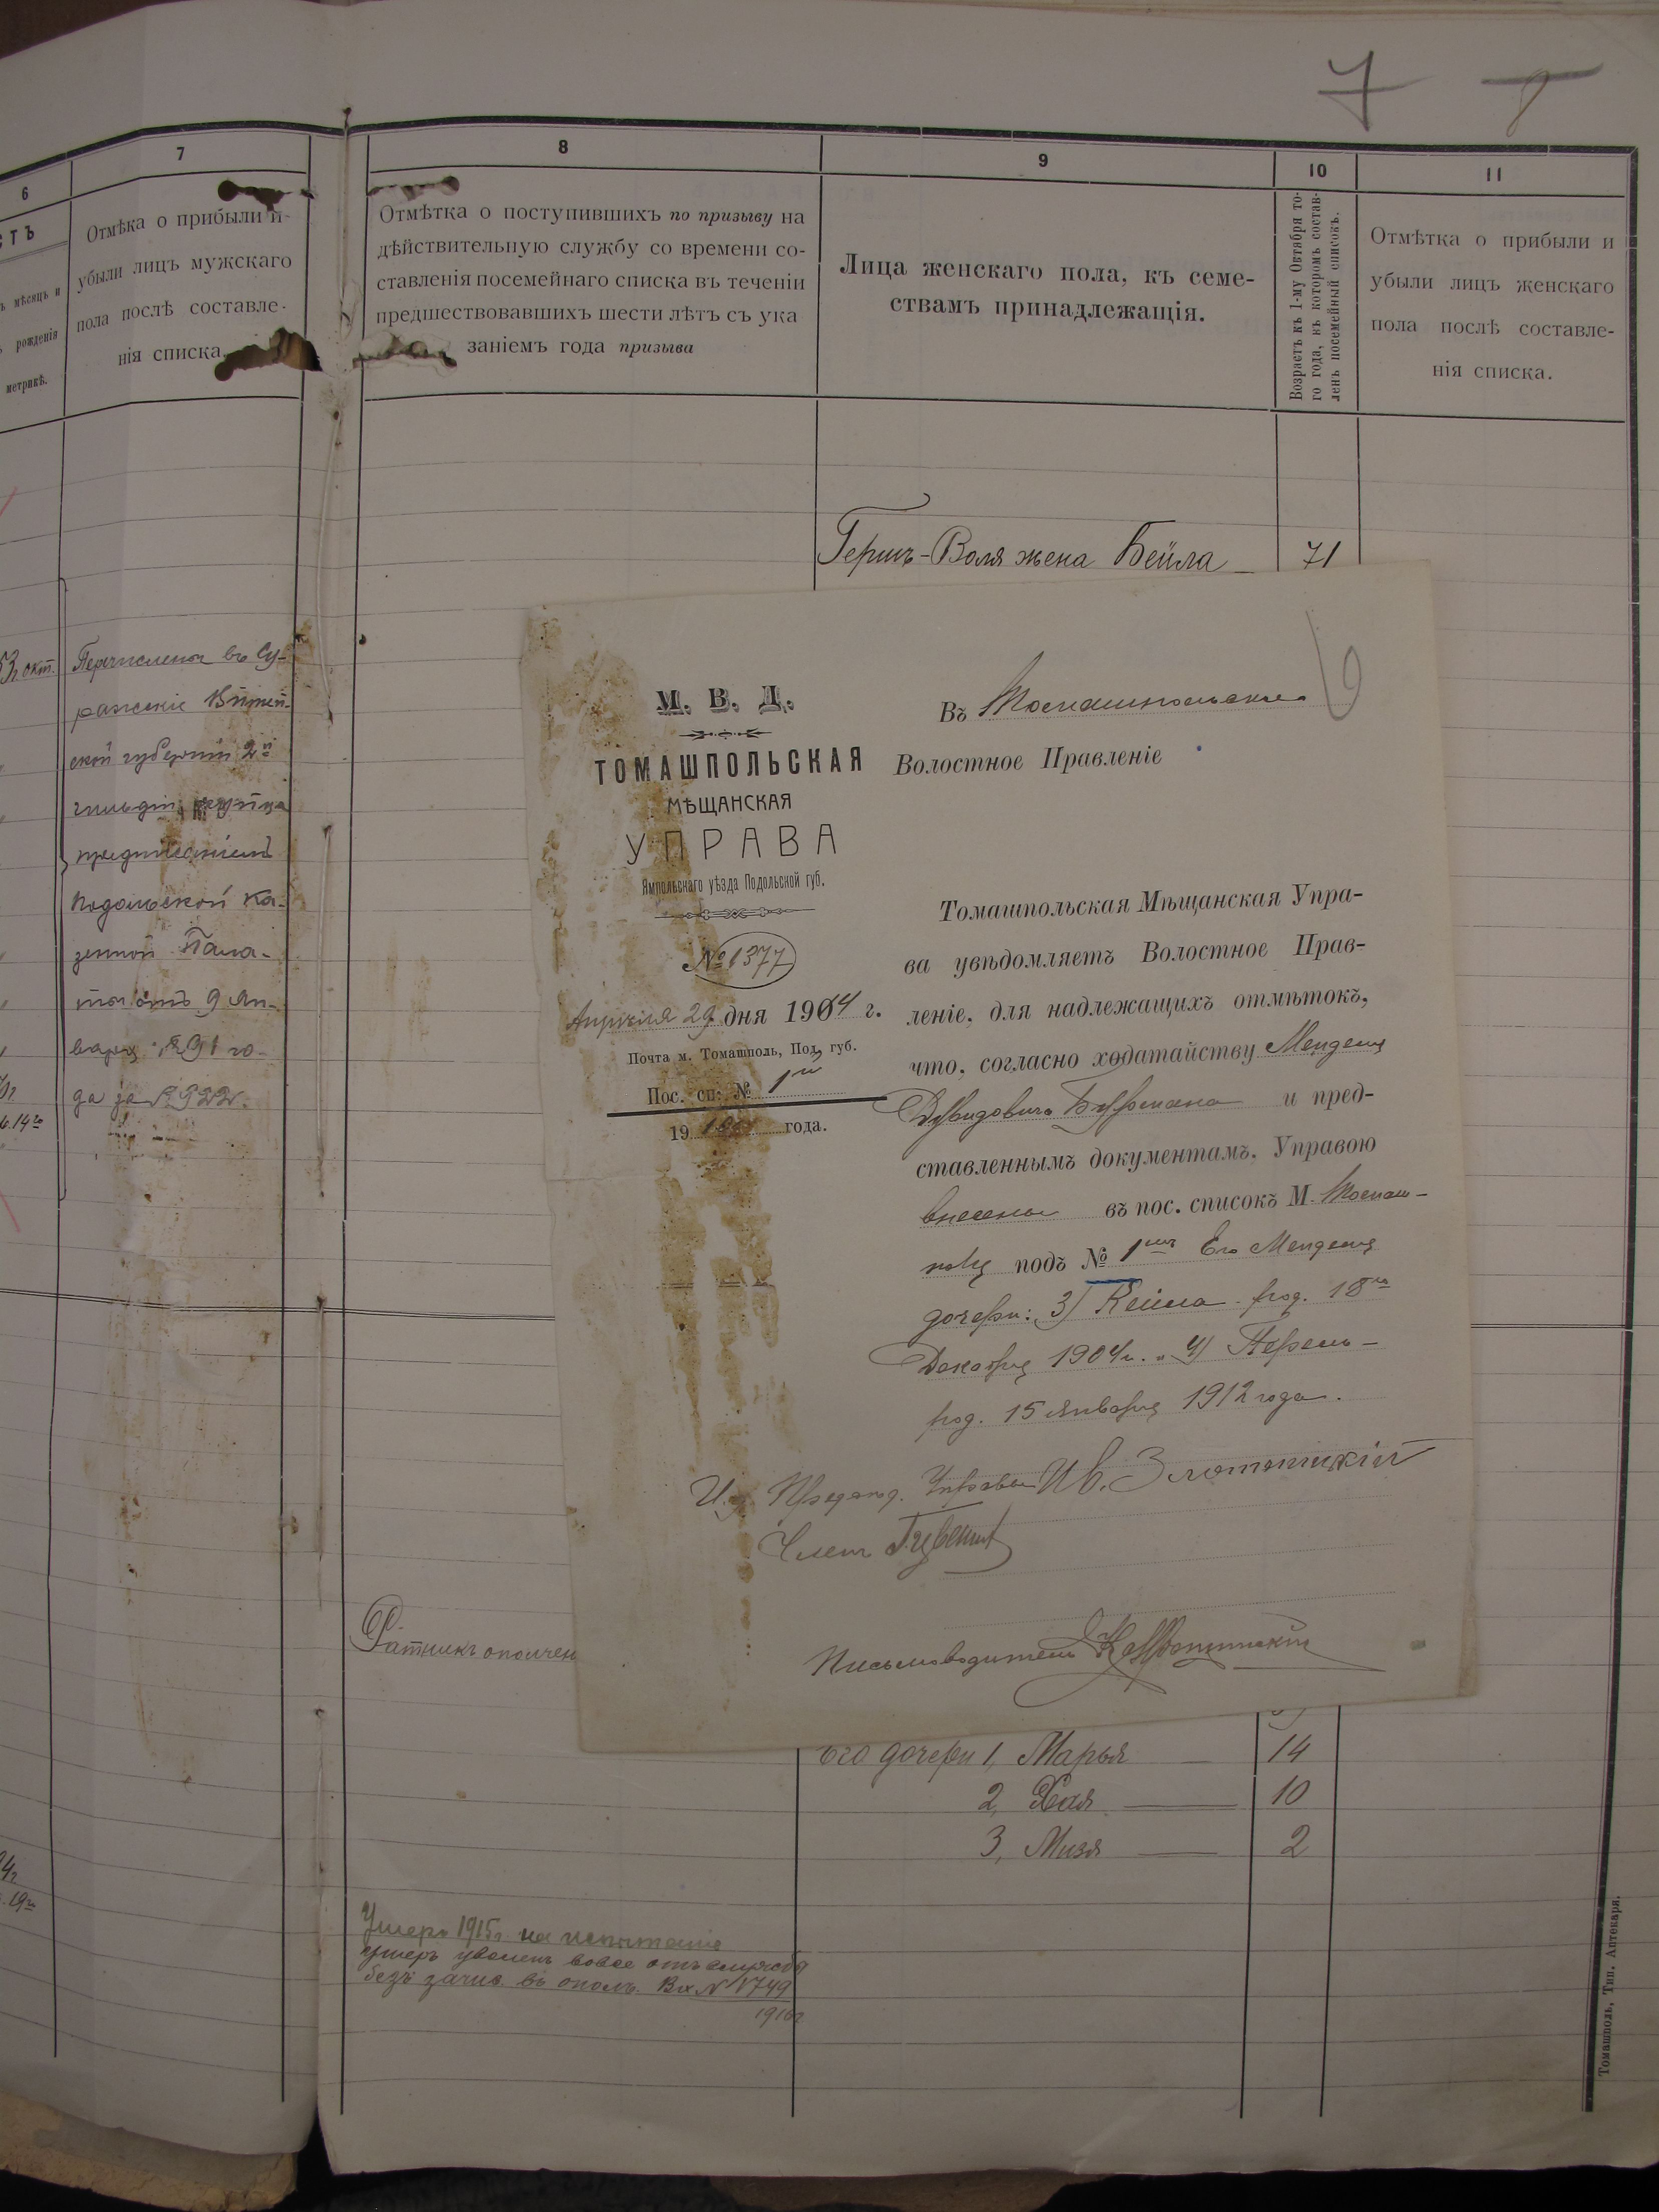 7
6
7
8
9
10
11
СТЬ
ъ мѣсяцъ и
рожденія
метрикѣ.
Отмѣка о прибыли и
убыли лицъ мужскаго
пола послѣ составле-
нія списка.
Отмѣтка о поступившихъ по призыву на
дѣйствительную службу со времени со-
ставленія посемейнаго списка въ теченіи
предшествовавшихъ шести лѣтъ съ ука
заніемъ года призыва
Лица женскаго пола, къ семе-
ствамъ принадлежащія.
Возрастъ къ 1-му Октября то-
го года, въ которомъ состав-
ленъ посемейный списокъ.
Отмѣтка о прибыли и
убыли лицъ женскаго
пола послѣ составле-
нія списка.
Гершъ-Воля жена Бейла 71
окт.
Перечислены въ Су-
ражскіе Витеб-
ской губерніи 2й
гильдіи купца
предписаніемъ
Подольской Ка-
зенной Пала-
ты отъ 9 Ян-
варя 1891 го-
да за № 922.
М. В. Д.
ТОМАШПОЛЬСКАЯ
МѢЩАНСКАЯ
УПРАВА
Ямпольскаго уѣзда Подольской губ.
№ 1377
Апрѣля 29 дня 1914 г.
Почта м. Томашполь, Под. губ.
Пос. сп: № 1й
19 года.
Въ Томашпольское
Волостное Правленіе
Томашпольская Мѣщанская Упра-
ва увѣдомляетъ Волостное Прав-
леніе, для надлежащихъ отмѣтокъ,
что, согласно ходатайству Менделя
Дувидовича и пред-
ставленнымъ документамъ, Управою
внесены въ пос. списокъ М. Томаш-
поля подъ № 1мъ Его Менделя
дочери: 3) Кейла род. 18го
Декабря 1904 г. и 4) Перель
род. 15 января 1912 года.
И. д. Предсѣд. Управы Ив. Злотоницкій
Членъ
Письмоводитель
Ратникъ ополчен
его дочери 1, Марья 14
2, Хая 10
3, Мизя 2
Умеръ 1915 г. на испытаніе
умеръ уволенъ вовсе отъ службы
безъ зачис. въ ополч. Вх № 1749
1916 г
Томашполь, Тип. Аптекаря.